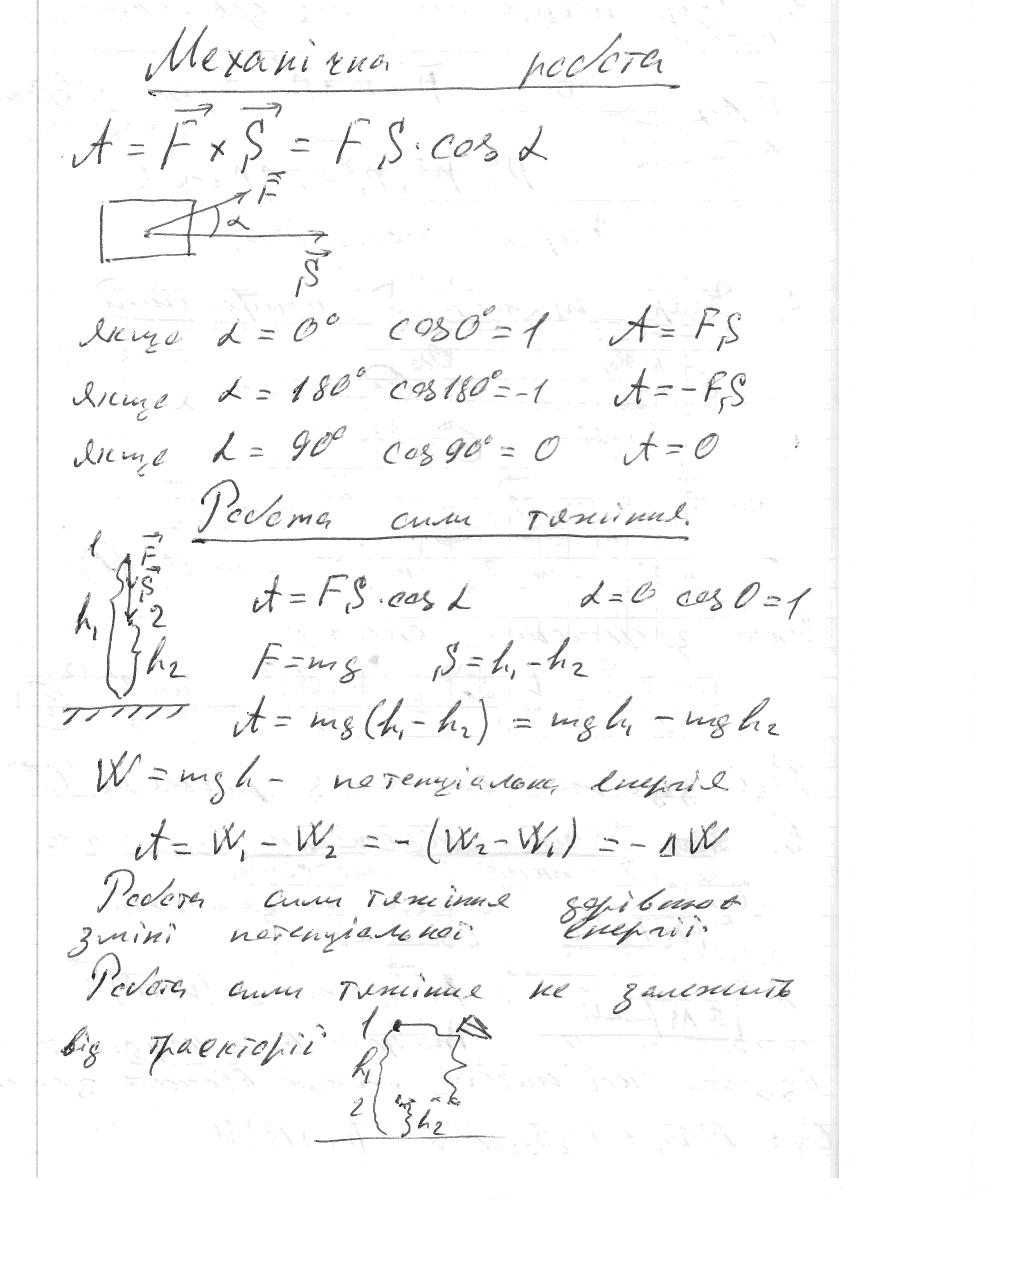 Механічна робота
A = F⃗ × S⃗ = FS · cos α
F⃗
α
S⃗
якще α = 0° cos0° = 1 A = FS
якще α = 180° cos180° = -1 A = -FS
якще α = 90° cos90° = 0 A = 0
Робота сили тяжіння.
1 F⃗
S⃗
h₁ 2 h₂
A = FS · cos α α = 0 cos0 = 1
F = mg S = h₁ - h₂
A = mg(h₁ - h₂) = mgh₁ - mgh₂
W = mgh - потенціальна енергія
A = W₁ - W₂ = -(W₂ - W₁) = -ΔW
Робота сили тяжіння дорівнює
зміні потенціальної енергії.
Робота сили тяжіння не залежить
від траєкторії
1
h₁
2 h₂